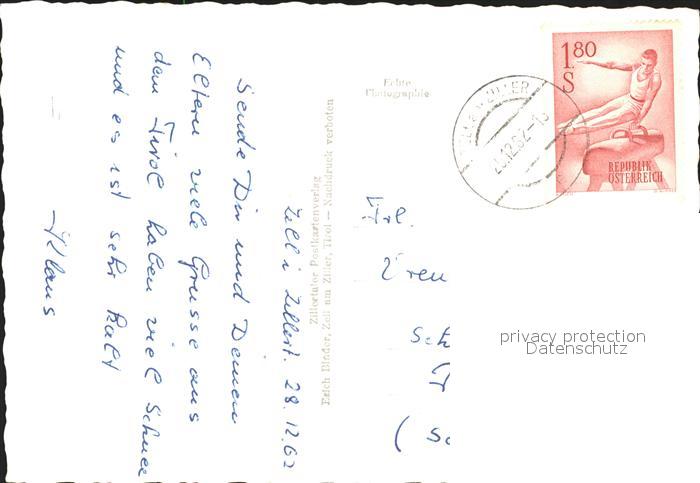 Zell i. Zillert. 28.12.62
Sende Dir und Deinen
Eltern viele Grüsse aus
dem Tirol haben viel Schnee
und es ist sehr kalt
Klaus
Zillertaler Postkartenverlag
Erich Binder, Zell am Ziller, Tirol — Nachdruck verboten
Echte
Photographie
ZILLER
.12.62-1
1.80
S
REPUBLIK
ÖSTERREICH
Frl.
Vren
Sch
(Sc
privacy protection
Datenschutz